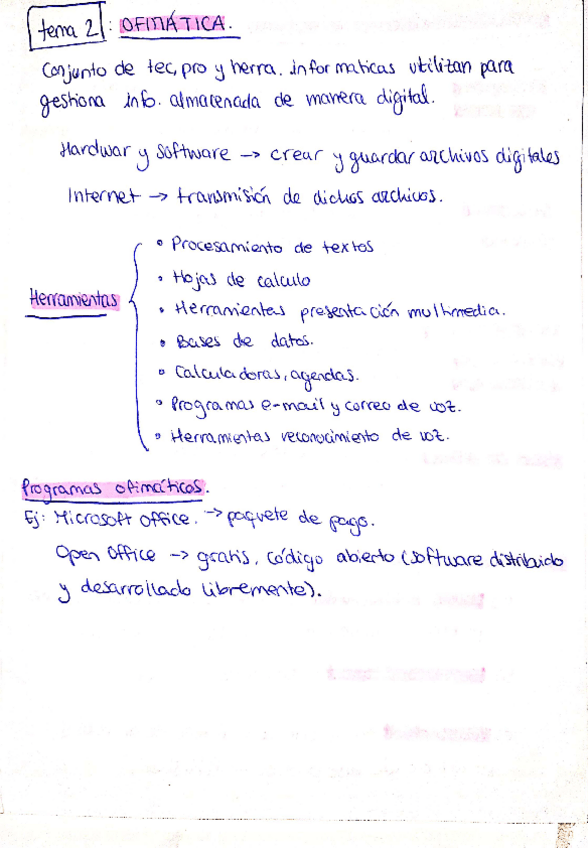 tema 2 : OFIMÁTICA.
Conjunto de tec, pro y herra. informaticas utilizan para
gestiona info. almacenada de manera digital.
Hardwar y software → crear y guardar archivos digitales
Internet → transmisión de dichos archivos.
Herramientas
• Procesamiento de textos
• Hojas de calculo
• Herramientas presentación multimedia.
• Bases de datos.
• Calculadoras, agendas.
• Programas e-mail y correo de voz.
• Herramientas reconocimiento de voz.
Programas ofimáticos.
Ej: Microsoft office. → paquete de pago.
Open Office → gratis, código abierto (software distribuido
y desarrollado libremente).